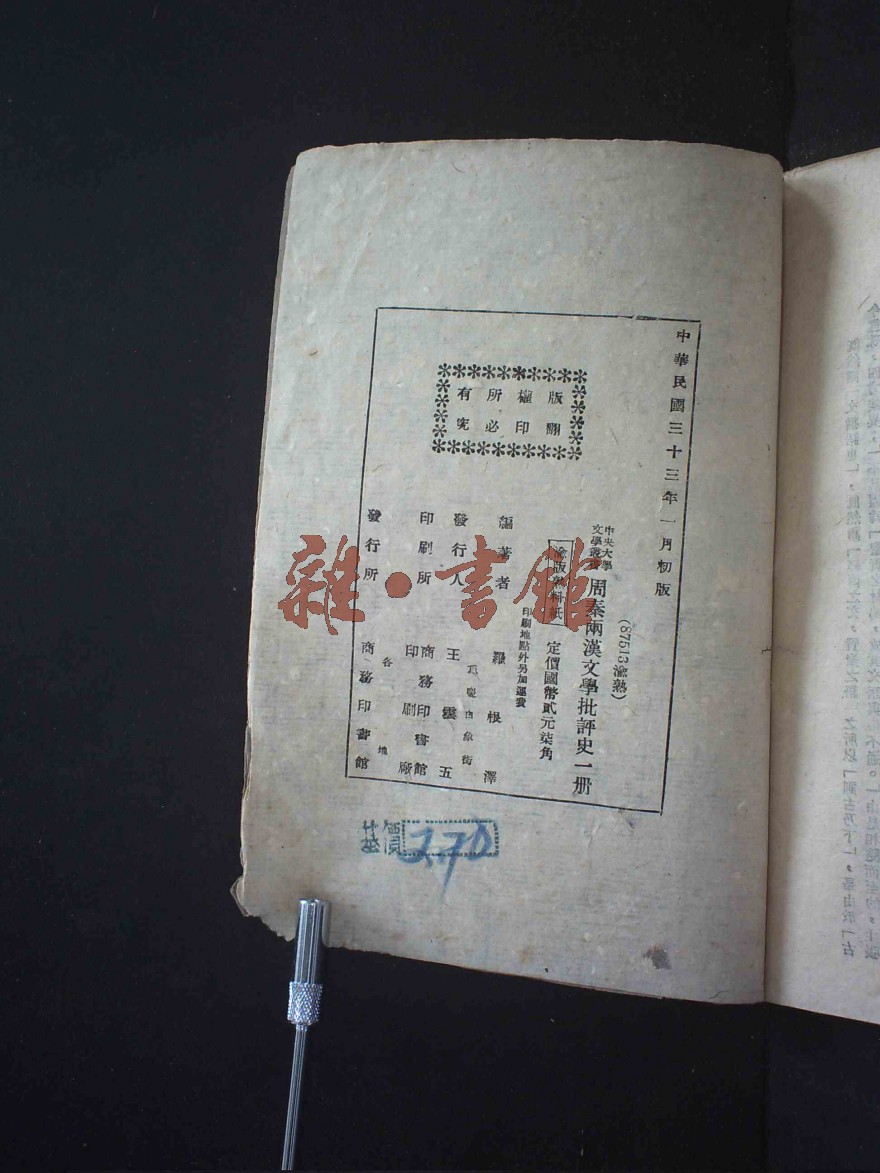 中華民國三十三年一月初版
(87513渝熟)
中央大學
文學叢書
周秦兩漢文學批評史一册
渝版熟料紙
定價國幣貳元柒角
印刷地點外另加運費
編著者 羅根澤
重慶白象街
發行人 王雲五
印刷所 商務印書館
印刷廠
各地
發行所 商務印書館
版權所有
翻印必究
基價 2.70
雜·書館